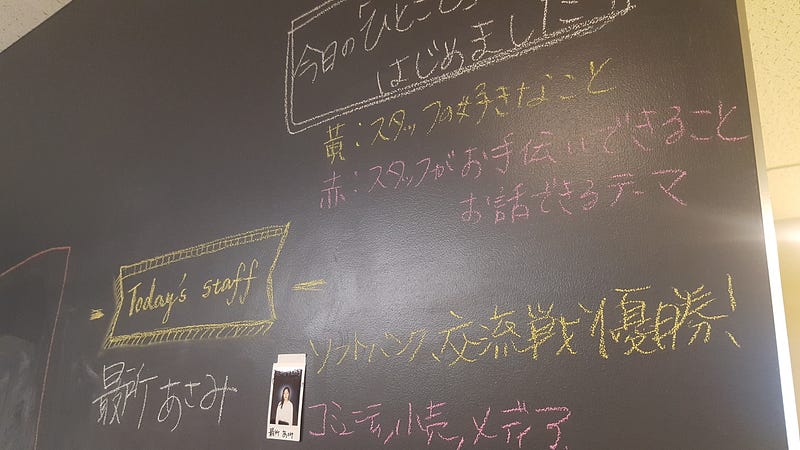 今日の「ひとこと
はじめました!!
黄：スタッフの好きなこと
赤：スタッフがお手伝いできること
お話できるテーマ
Today's staff
ソフトバンク、交流戦優勝！
最所 あさみ
最所 あさみ
コミュニティ、小売、メディア